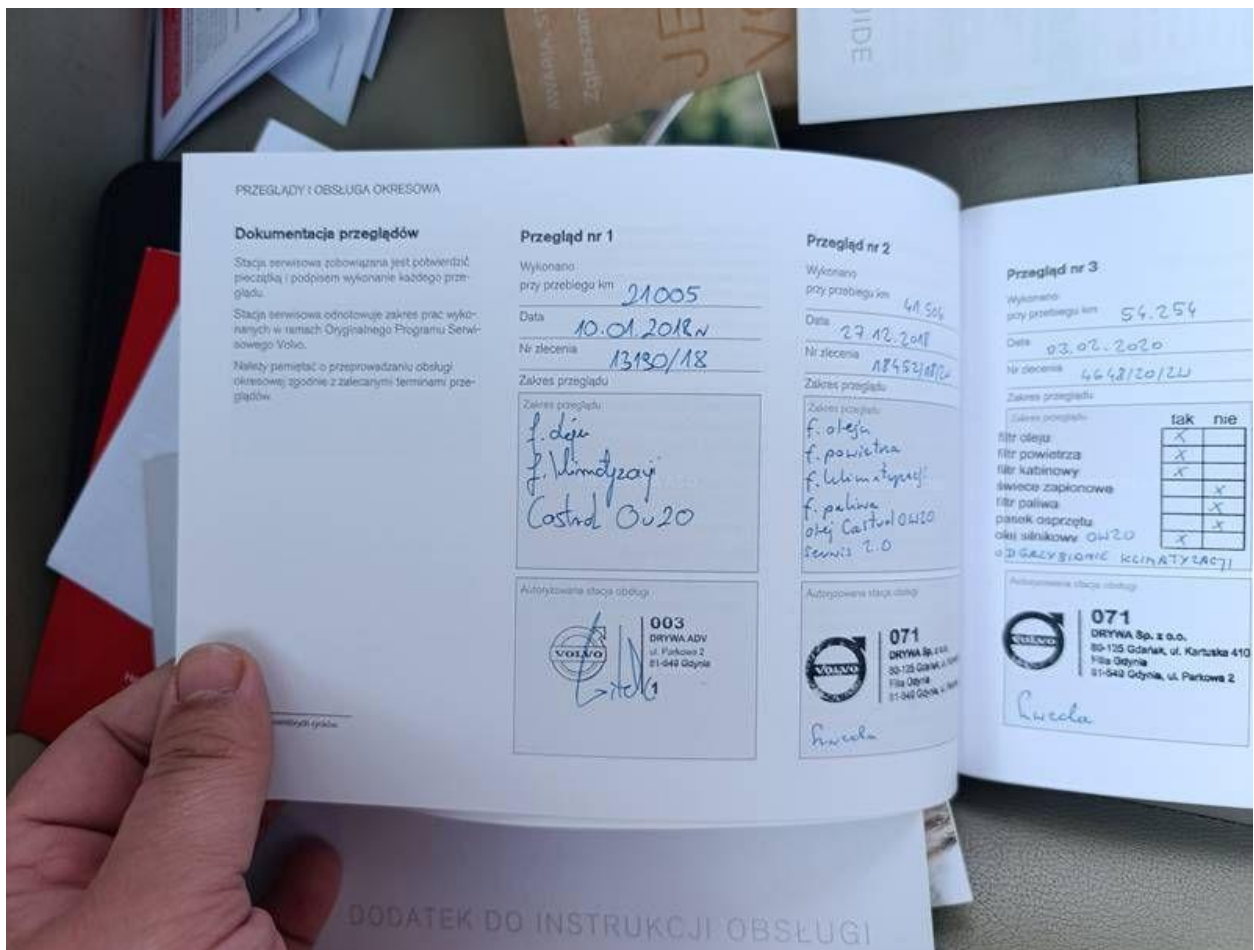 AWARIA, ST
Zgłaszan
JE
VO
IDE
PRZEGLĄDY I OBSŁUGA OKRESOWA
Dokumentacja przeglądów
Stacja serwisowa zobowiązana jest potwierdzić
pieczątką i podpisem wykonanie każdego prze-
glądu.
Stacja serwisowa odnotowuje zakres prac wyko-
nanych w ramach Oryginalnego Programu Serwi-
sowego Volvo.
Należy pamiętać o przeprowadzaniu obsługi
okresowej zgodnie z zalecanymi terminami prze-
glądów.
Przegląd nr 1
Wykonano
przy przebiegu km 21005
Data 10.01.2018r
Nr zlecenia 13190/18
Zakres przeglądu
Zakres przeglądu
f. oleju
f. klimatyzacji
Castrol 0w20
Autoryzowana stacja obsługi
VOLVO
003
DRYWA ADV
ul. Parkowa 2
81-549 Gdynia
1
Przegląd nr 2
Wykonano
przy przebiegu km 41.504
Data 27.12.2018
Nr zlecenia 18452/18/
Zakres przeglądu
Zakres przeglądu
f. oleju
f. powietrza
f. klimatyzacji
f. paliwa
olej Castrol 0W20
serwis 2.0
Autoryzowana stacja obsługi
VOLVO
071
DRYWA Sp. z o.o.
80-125 Gdańsk, ul.
Filia Gdynia
81-549 Gdynia, ul.
Przegląd nr 3
Wykonano
przy przebiegu km 54.254
Data 03.02.2020
Nr zlecenia 4648/20/ZW
Zakres przeglądu
Zakres przeglądu tak nie
filtr oleju X
filtr powietrza X
filtr kabinowy X
świece zapłonowe X
filtr paliwa X
pasek osprzętu X
olej silnikowy 0W20 X
ODGRZYBIANIE KLIMATYZACJI
Autoryzowana stacja obsługi
VOLVO
071
DRYWA Sp. z o.o.
80-125 Gdańsk, ul. Kartuska 410
Filia Gdynia
81-549 Gdynia, ul. Parkowa 2
DODATEK DO INSTRUKCJI OBSŁUGI